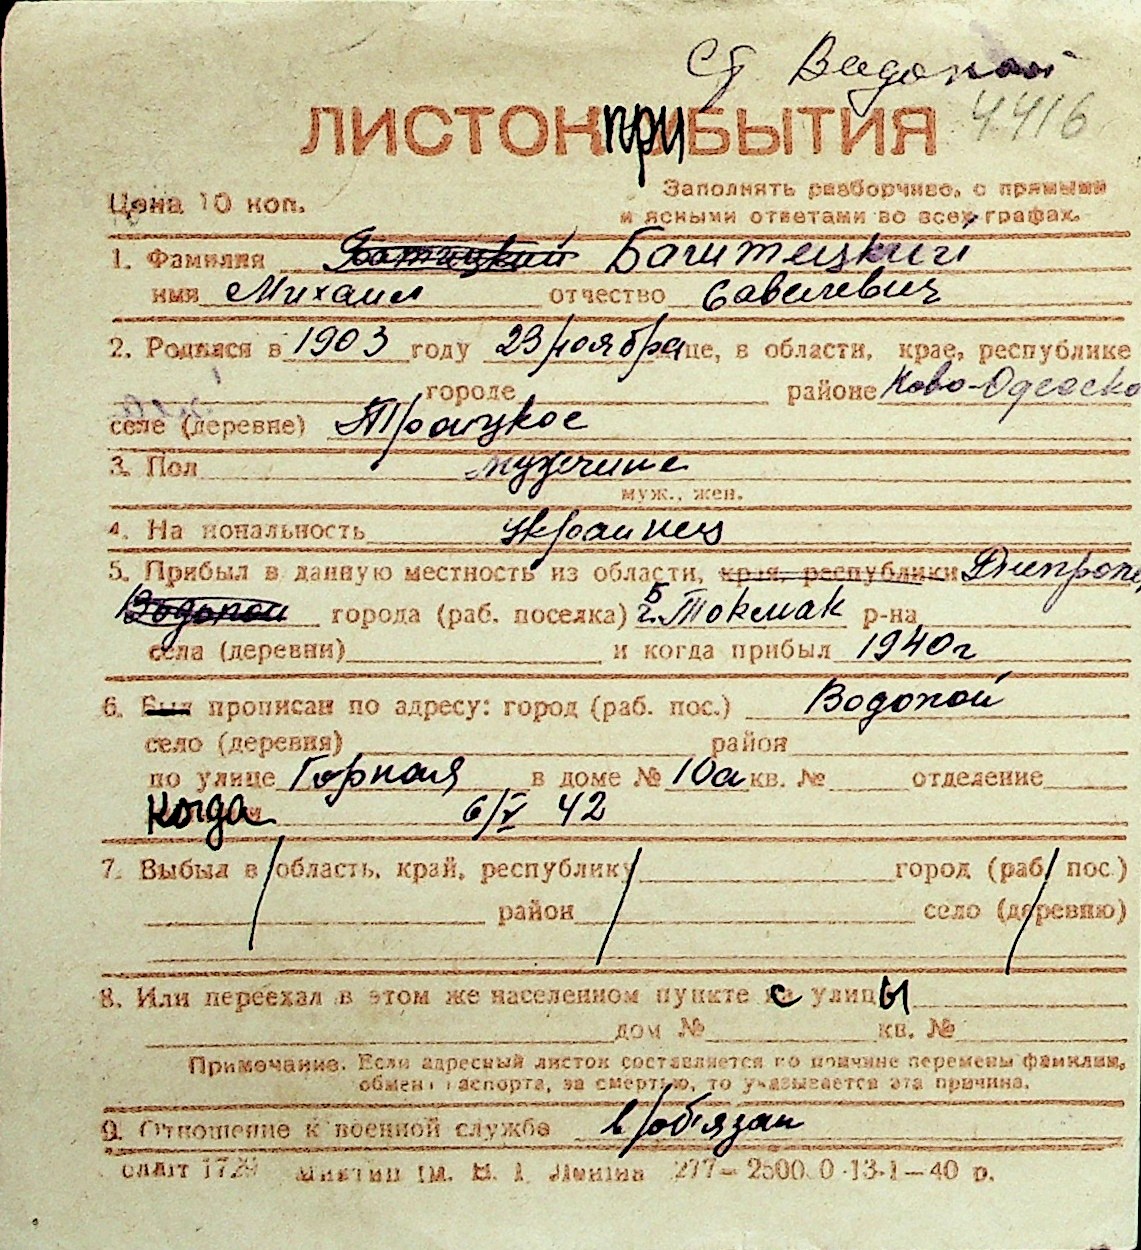 ст Водопой
ЛИСТОК ПРИБЫТИЯ 4416
Цена 10 коп. Заполнять разборчиво, с прямыми
и ясными ответами во всех графах.
1. Фамилия Багитецкий
имя Михаил отчество Савелевич
2. Родился в 1903 году 23/ноября це, в области, крае, республике
городе районе Ново-Одесско
селе (деревне) Троицкое
3. Пол мужчине
муж., жен.
4. Национальность украинец
5. Прибыл в данную местность из области, края, республики Днепропе
Водопой города (раб. поселка) Б. Токмак р-на
села (деревни) и когда прибыл 1940г
6. Был прописан по адресу: город (раб. пос.) Водопой
село (деревня) район
по улице Горная в доме № 10а кв. № отделение
когда 6/V 42
7. Выбыл в область, край, республику город (раб. пос.)
район село (деревню)
8. Или переехал в этом же населенном пункте с улицы
дом № кв. №
Примечание. Если адресный листок составляется по причине перемены фамилии,
обмена паспорта, за смертью, то указывается эта причина.
9. Отношение к военной службе в/обязан
277—2500 0-13-1—40 р.